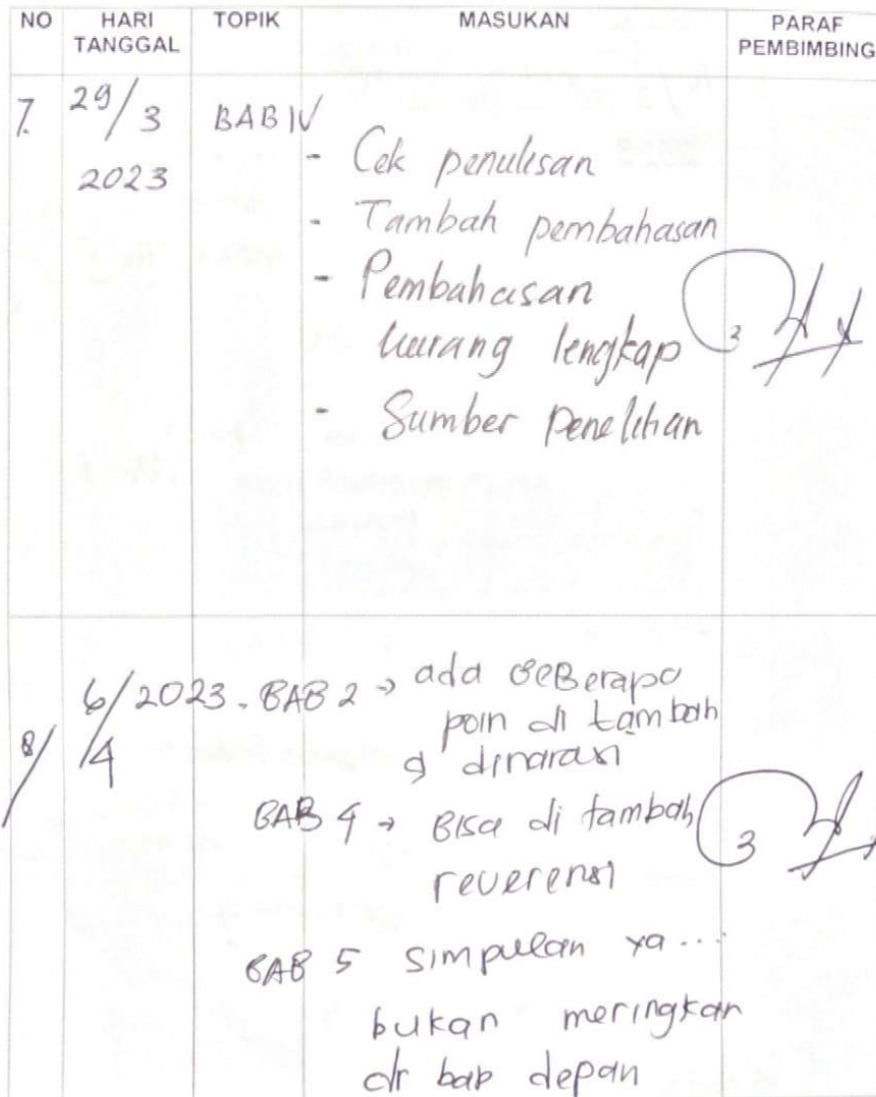 NO HARI TANGGAL TOPIK MASUKAN PARAF PEMBIMBING
7. 29/3 BAB IV
2023
- Cek penulisan
- Tambah pembahasan
- Pembahasan
kurang lengkap
- Sumber Penelitian
8/ 6/4 2023. BAB 2 → ada BeBerapa
poin di tambah
dinarasi
BAB 4 → Bisa di tambah
reverensi
BAB 5 simpulan ya...
bukan meringkan
dr bab depan